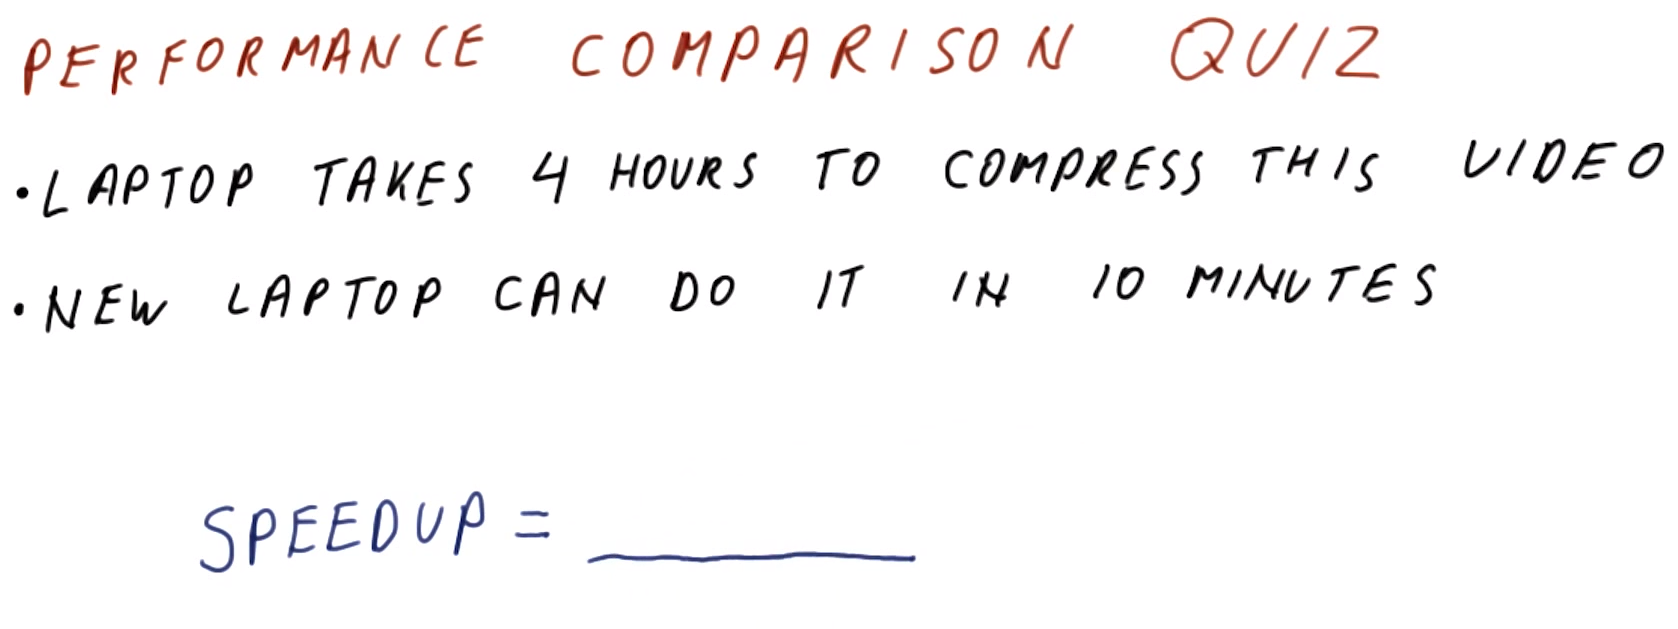 PERFORMANCE COMPARISON QUIZ
• LAPTOP TAKES 4 HOURS TO COMPRESS THIS VIDEO
• NEW LAPTOP CAN DO IT IN 10 MINUTES
SPEEDUP = ________